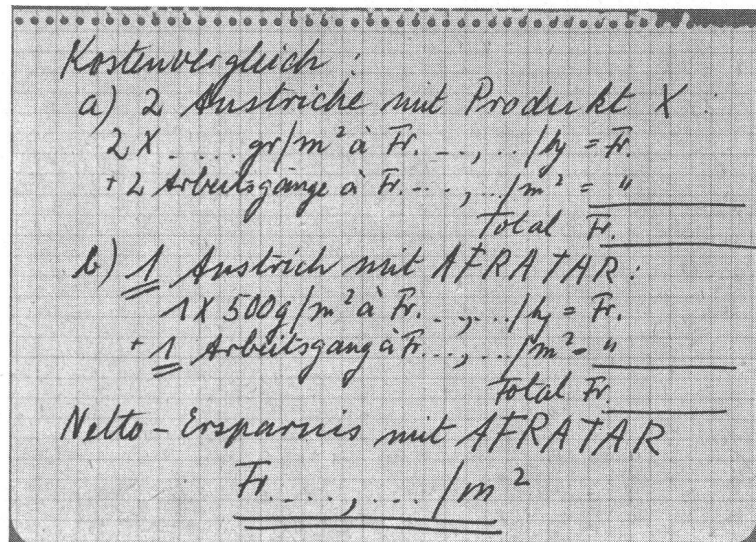 Kostenvergleich:
a) 2 Anstriche mit Produkt X:
2 X .... gr/m² à Fr. ...,../kg = Fr.
+ 2 Arbeitsgänge à Fr. ...,.../m² = "
Total Fr.
b) 1 Anstrich mit AFRATAR:
1 X 500g/m² à Fr. ...,.../kg = Fr.
+ 1 Arbeitsgang à Fr. ...,.../m² = "
Total Fr.
Netto-Ersparnis mit AFRATAR
Fr. ...,.../m²